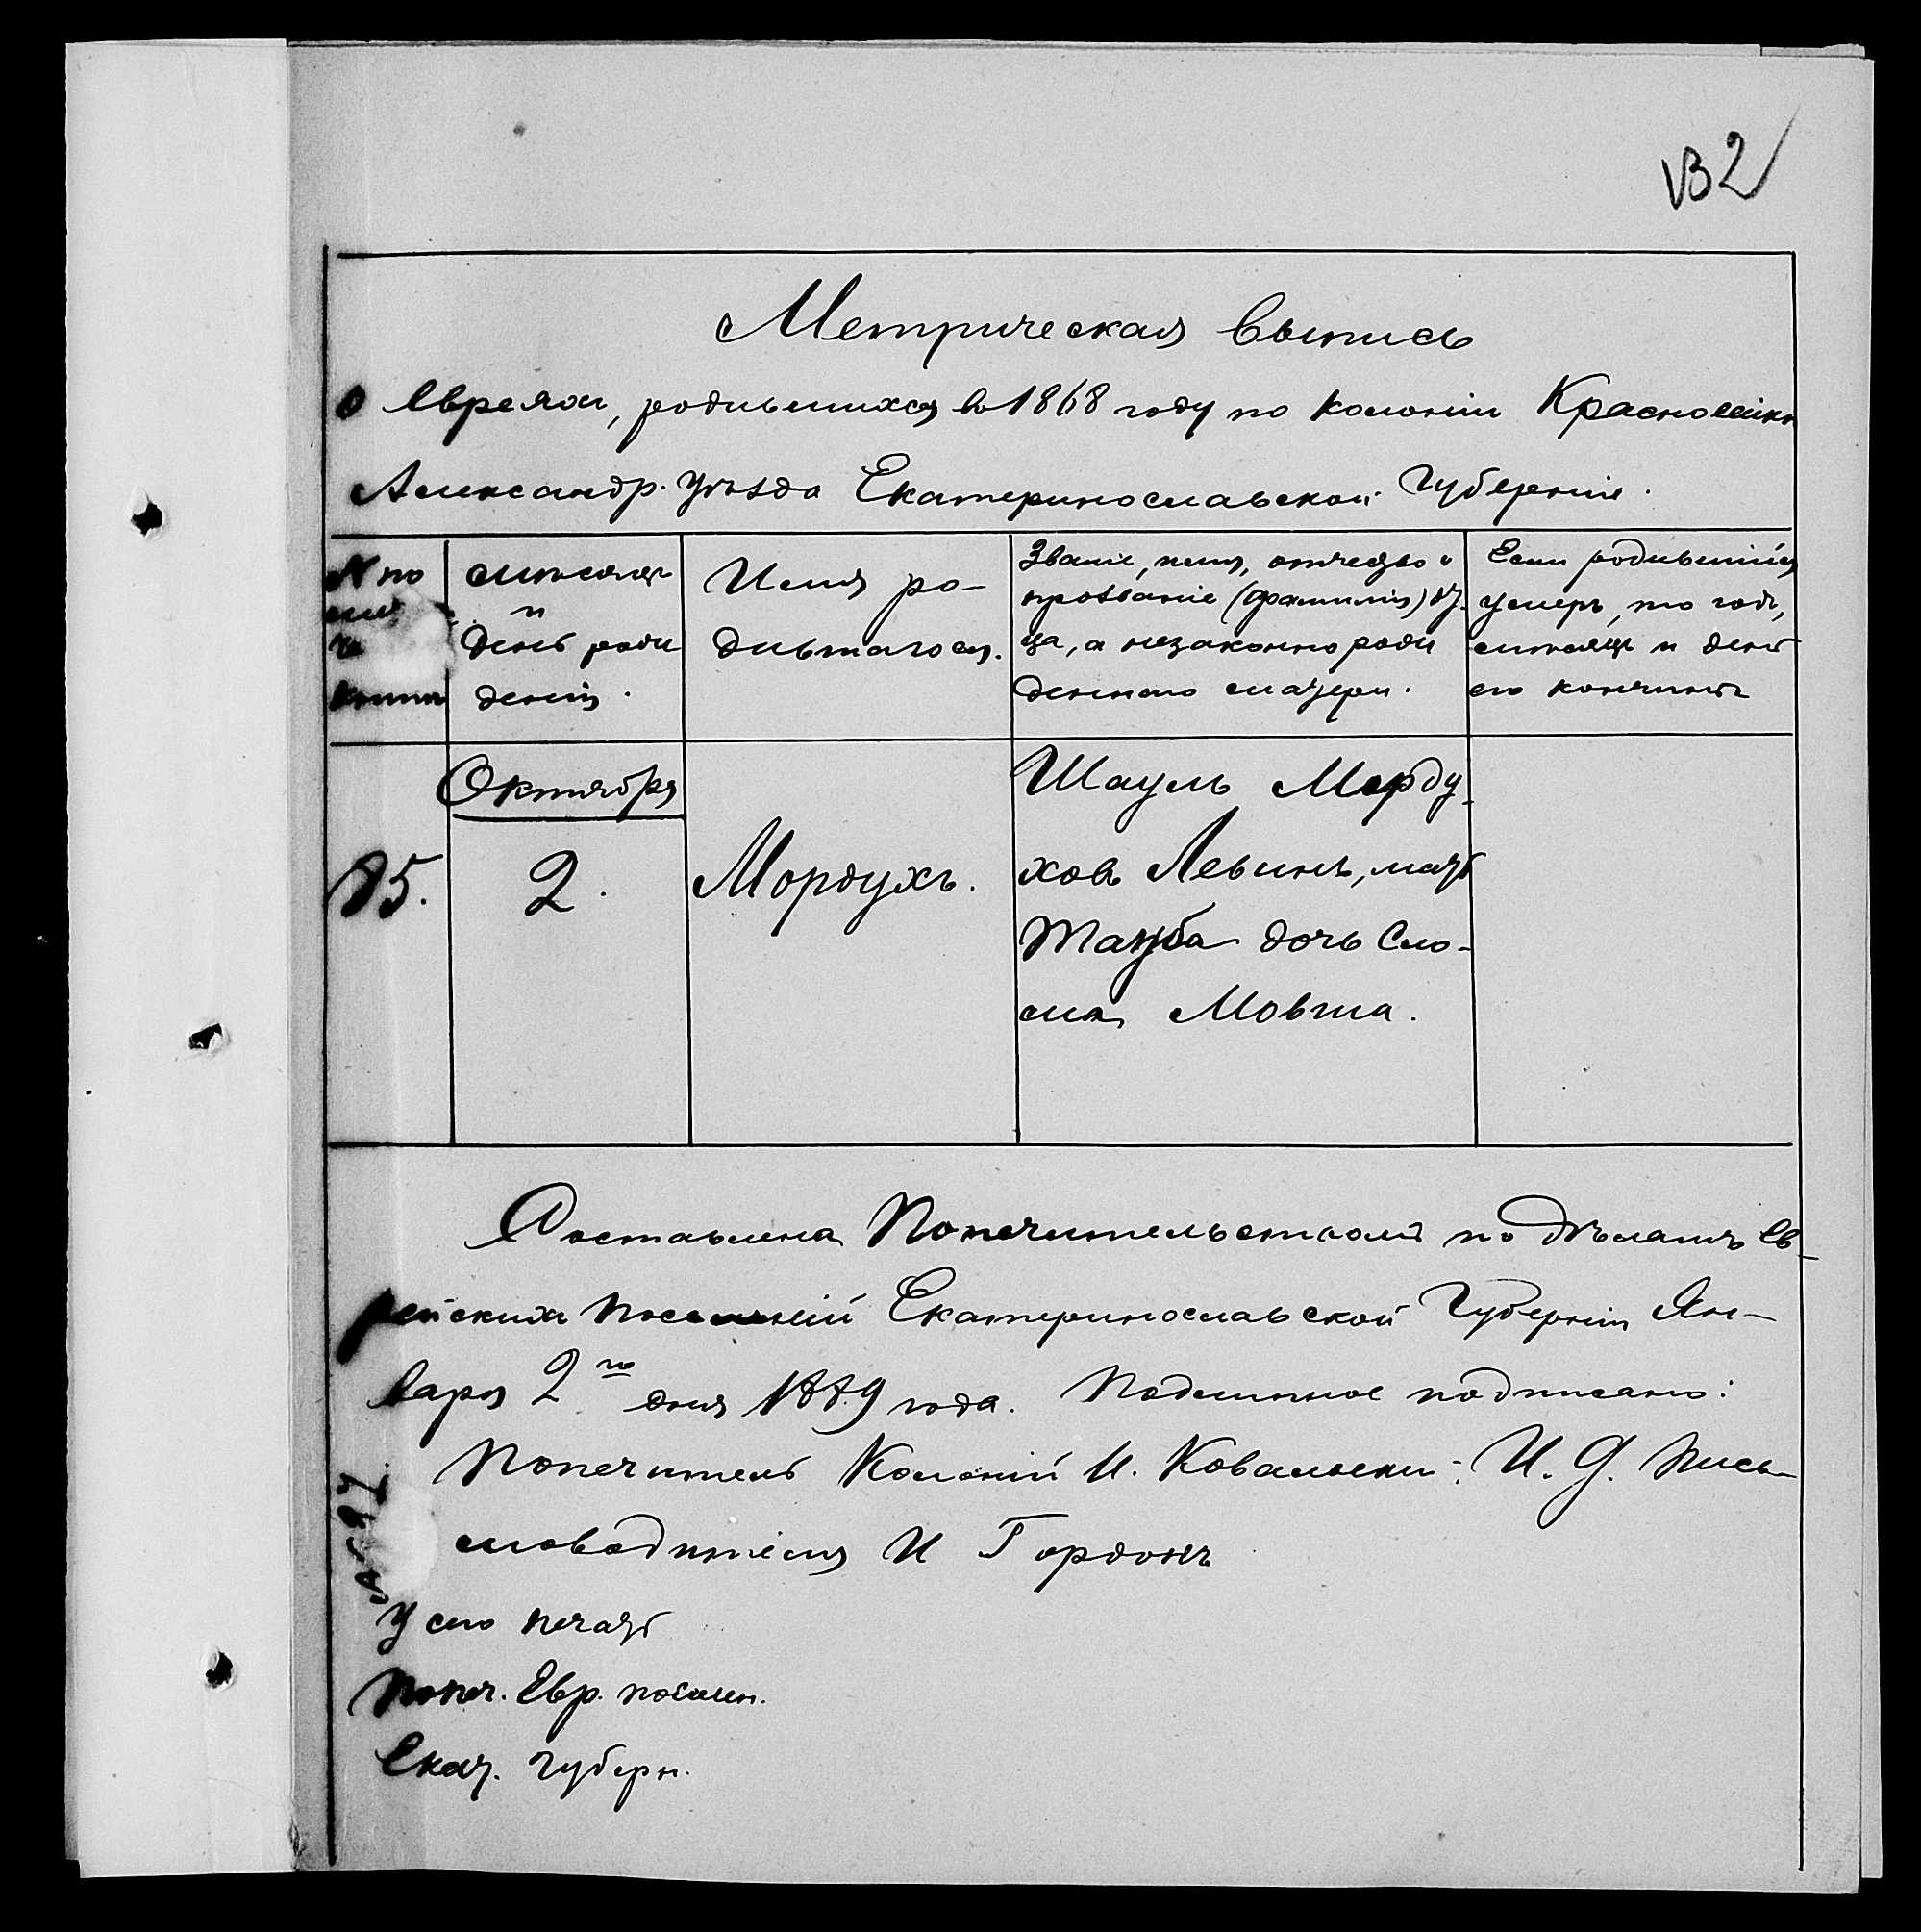 132
Метрическая выпись
о Евреяхъ, родившихся въ 1868 году по колоніи Красноселк
Александр. уѣзда Екатеринославской Губерніи.
N по
мѣсяцъ
и
день рожденія.
Имя ро-
дившагося.
Званіе, имя, отчество и
прозваніе (фамилія) от
ца, а незаконно рож
деннаго матери.
Если родившійся
умеръ, то годъ,
мѣсяцъ и день
его кончины
Октября
2.
Мордухъ.
Шауль Морду
ховъ Левинъ, мать
Тауба дочь Сло-
ма Мовша.
Доставлена Попечительствомъ по дѣламъ Ев-
рейскихъ поселеній Екатеринославской Губерніи Ян-
варя 2го дня 1889 года. Подлинное подписано:
Попечитель Колоній И. Ковальски: И. Д. Пись-
моводителя И Гордонъ
У сего печать
Попеч. Евр. поселен.
Екат. губерн.